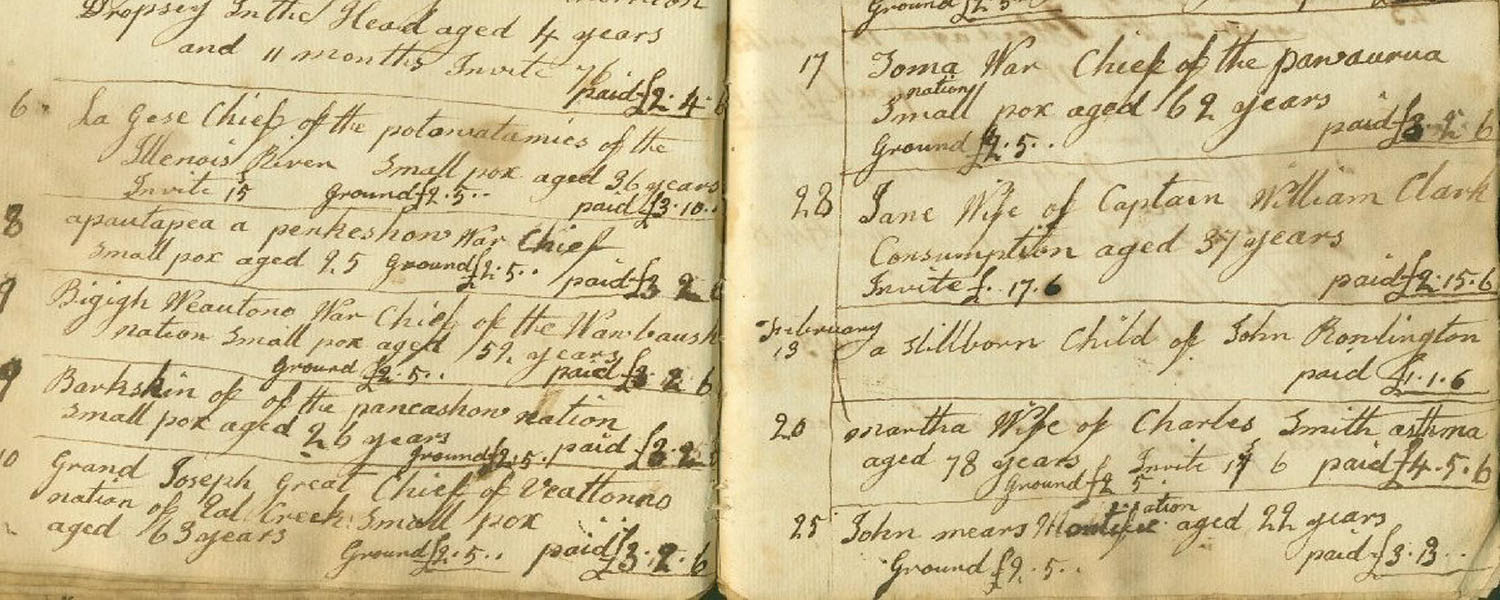 Dropsey In the Head aged 4 years
and 11 months Invite 7/6
paid £2.4.
6 La Gese Chief of the potawatamies of the
Illenois River Small pox aged 36 years
Invite 15 Ground £2.5..
paid £3.10..
8 apautapea a penkeshow War Chief
Small pox aged 25 Ground £2.5.. paid £3 2
9 Bigigh Weautono War Chief of the Wawbaush
nation Small pox aged 52 years
Ground £2.5.. paid £3 2 6
9 Barkskin of of the pancashow nation
Small pox aged 26 years
Ground £2.5. paid £3.2.
10 Grand Joseph Great Chief of Veattonno
nation of Eal Creek Small pox
aged 63 years
Ground £2.5.. paid £3.2.6
Ground £2 5..
17 Toma War Chief of the pawaurua
nation
Small pox aged 62 years
paid £3.2 6
Ground £2.5..
28 Jane Wife of Captain William Clark
Consumption aged 37 years
Invite £.17.6
paid £2.15.6
February
13 a stillborn Child of John Rowlington
paid £1.1.6
20 martha Wife of Charles Smith asthma
aged 78 years Invite 17 6 paid £4.5.6
Ground £2 5.
25 John mears aged 22 years
paid £3.13..
Ground £2.5..